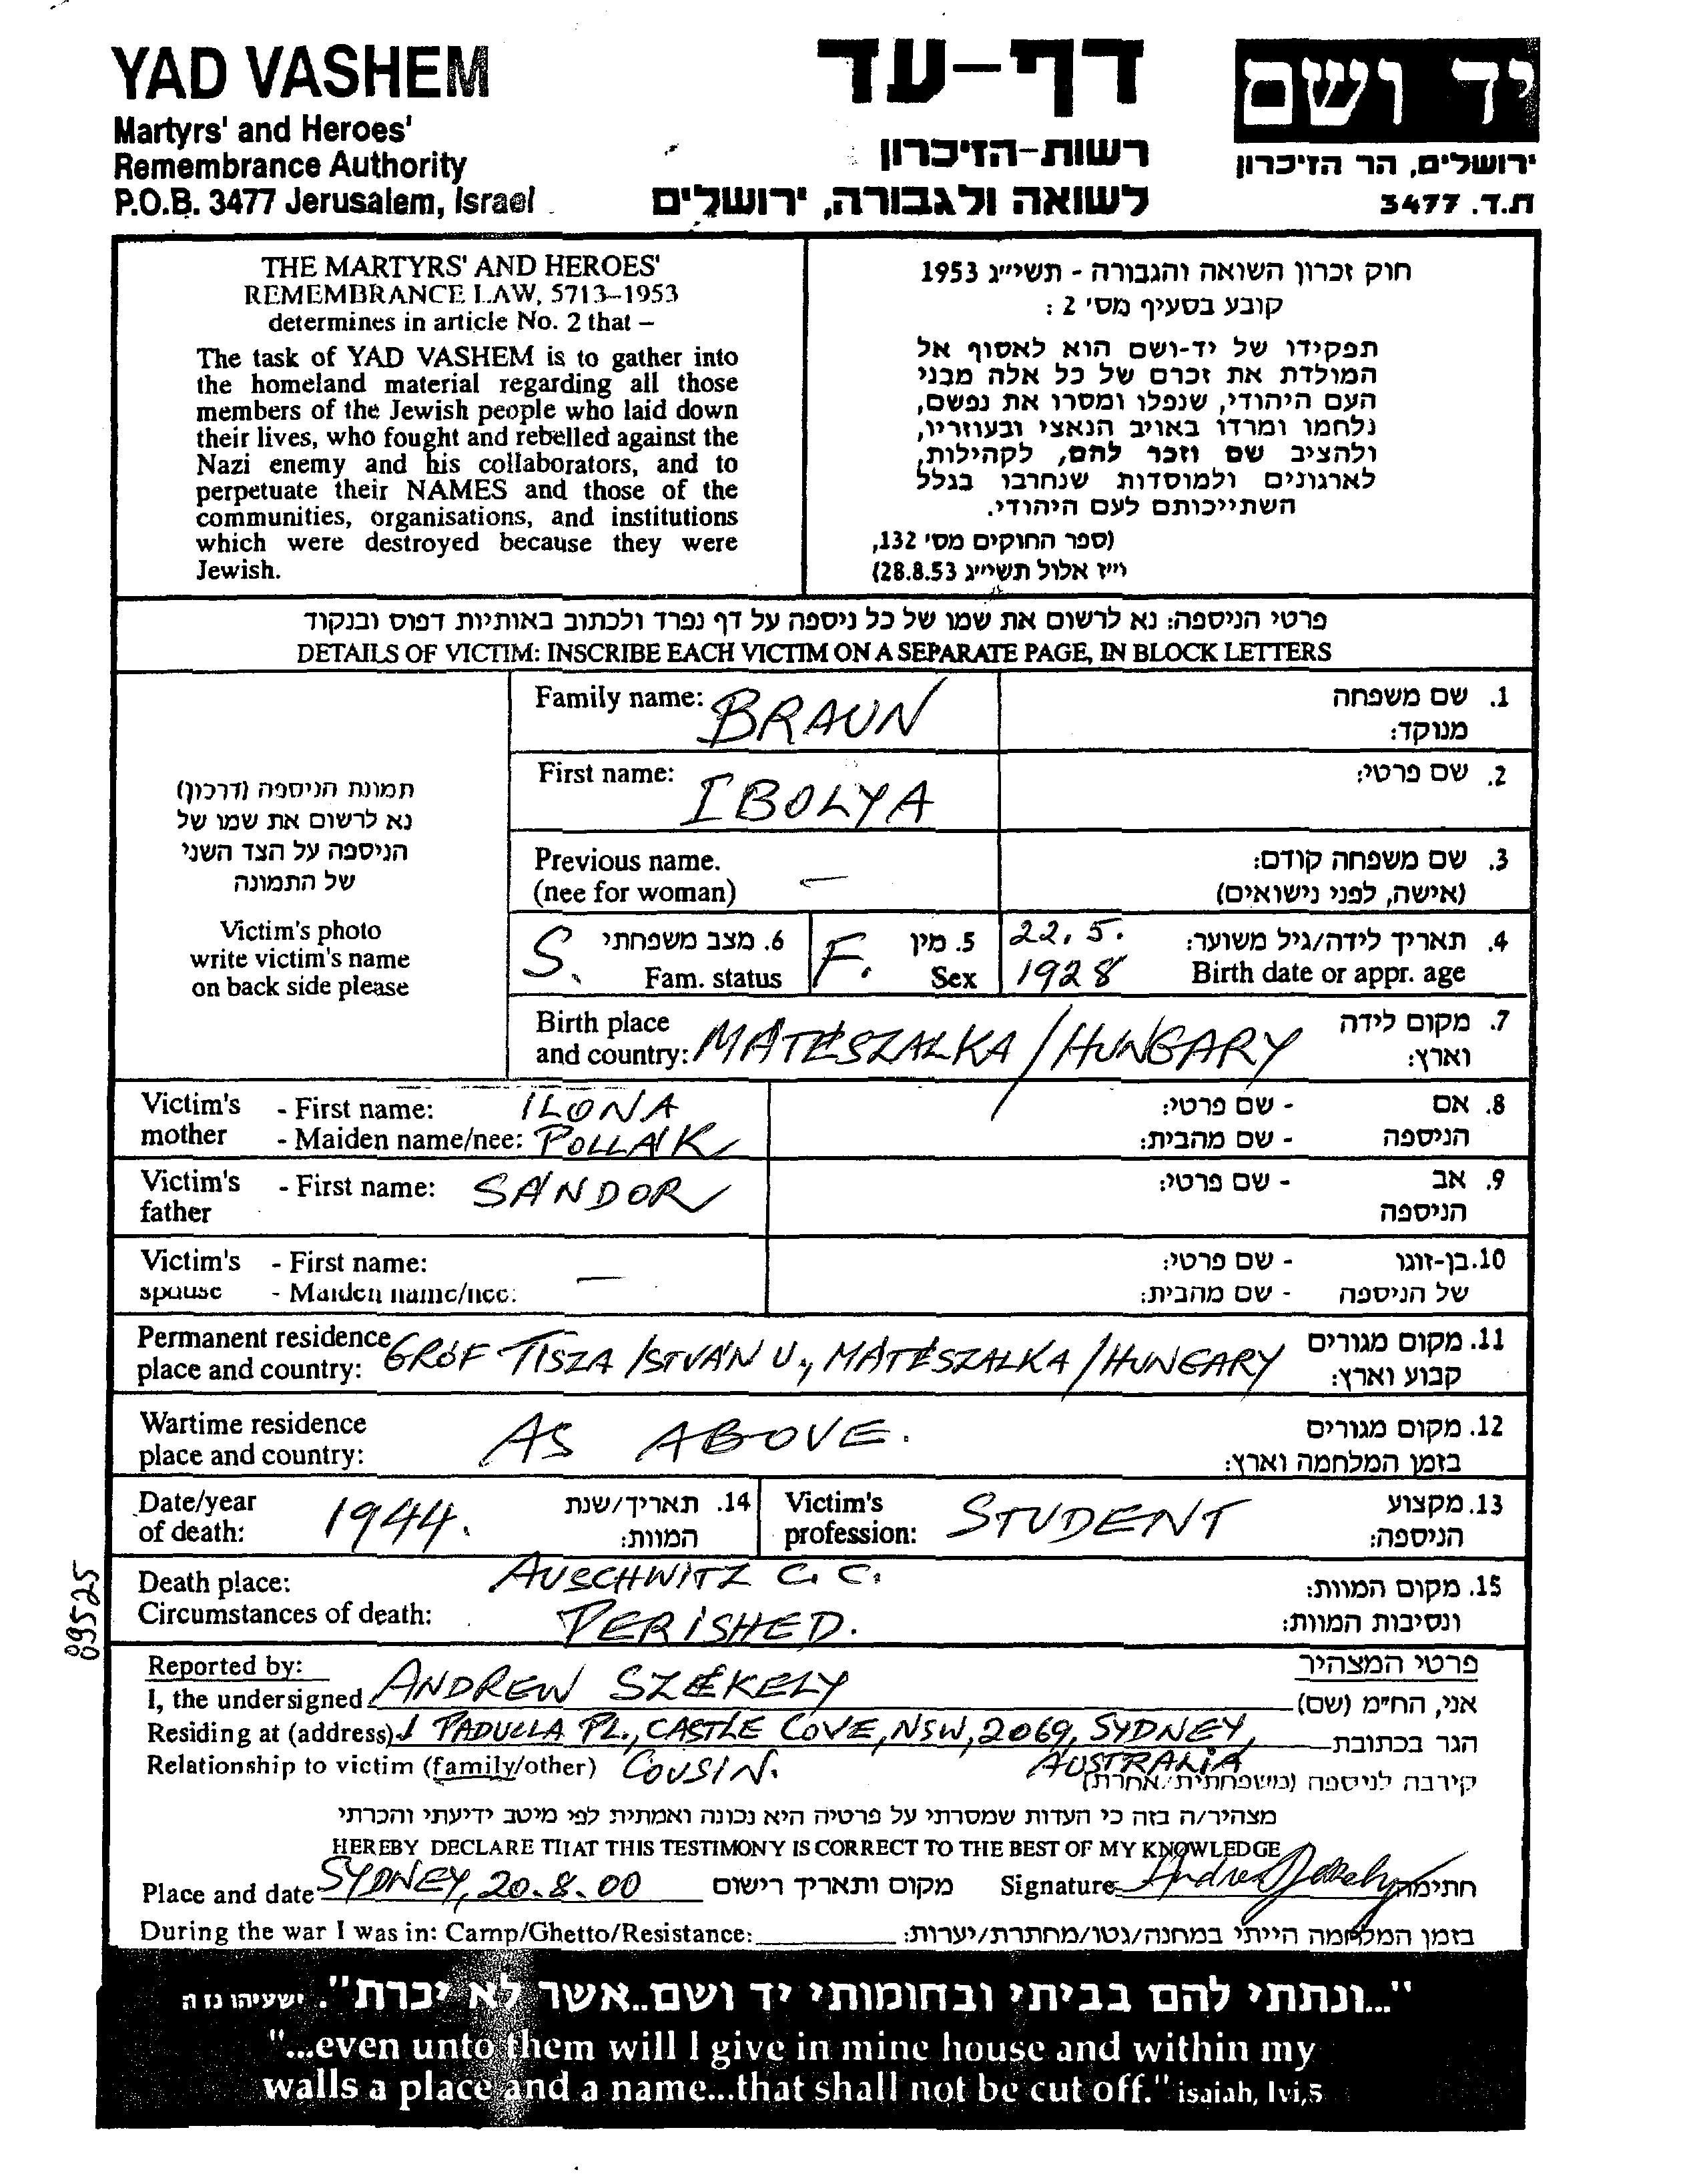 YAD VASHEM
Martyrs' and Heroes'
Remembrance Authority
P.O.B. 3477 Jerusalem, Israel
דף-עד
רשות-הזיכרון
לשואה ולגבורה, ירושלים
יד ושם
ירושלים, הר הזיכרון
ת.ד. 3477
THE MARTYRS' AND HEROES'
REMEMBRANCE LAW, 5713-1953
determines in article No. 2 that –
The task of YAD VASHEM is to gather into
the homeland material regarding all those
members of the Jewish people who laid down
their lives, who fought and rebelled against the
Nazi enemy and his collaborators, and to
perpetuate their NAMES and those of the
communities, organisations, and institutions
which were destroyed because they were
Jewish.
חוק זכרון השואה והגבורה - תשי״ג 1953
קובע בסעיף מס׳ 2 :
תפקידו של יד-ושם הוא לאסוף אל
המולדת את זכרם של כל אלה מבני
העם היהודי, שנפלו ומסרו את נפשם,
נלחמו ומרדו באויב הנאצי ובעוזריו,
ולהציב שם וזכר להם, לקהילות,
לארגונים ולמוסדות שנחרבו בגלל
השתייכותם לעם היהודי.
(ספר החוקים מס׳ 132,
י״ז אלול תשי״ג 28.8.53)
פרטי הניספה: נא לרשום את שמו של כל ניספה על דף נפרד ולכתוב באותיות דפוס ובנקוד
DETAILS OF VICTIM: INSCRIBE EACH VICTIM ON A SEPARATE PAGE, IN BLOCK LETTERS
תמונת הניספה (דרכון)
נא לרשום את שמו של
הניספה על הצד השני
של התמונה
Victim's photo
write victim's name
on back side please
Family name: BRAUN 1. שם משפחה
מנוקד:
First name: IBOLYA 2. שם פרטי:
Previous name. 3. שם משפחה קודם:
(nee for woman) — (אישה, לפני נישואים)
S. 6. מצב משפחתי F. 5. מין 22.5. 4. תאריך לידה/גיל משוער:
Fam. status Sex 1928 Birth date or appr. age
Birth place 7. מקום לידה
and country: MATÉSZALKA / HUNGARY וארץ:
Victim's - First name: ILONA - שם פרטי: 8. אם
mother - Maiden name/nee: POLLAK - שם מהבית: הניספה
Victim's - First name: SÁNDOR - שם פרטי: 9. אב
father הניספה
Victim's - First name: - שם פרטי: 10. בן-זוגו
spouse - Maiden name/nee: — - שם מהבית: של הניספה
Permanent residence 11. מקום מגורים
place and country: GRÓF TISZA ISTVÁN U., MÁTÉSZALKA / HUNGARY קבוע וארץ:
Wartime residence 12. מקום מגורים
place and country: AS ABOVE. בזמן המלחמה וארץ:
Date/year 1944. 14. תאריך/שנת Victim's STUDENT 13. מקצוע
of death: המוות: profession: הניספה:
Death place: AUSCHWITZ C. C. 15. מקום המוות:
Circumstances of death: PERISHED. ונסיבות המוות:
09525
Reported by: פרטי המצהיר
I, the undersigned ANDREW SZÉKELY אני, הח״מ (שם)
Residing at (address) 1 PADULLA PL., CASTLE COVE, NSW, 2069, SYDNEY, הגר בכתובת
AUSTRALIA
Relationship to victim (family/other) COUSIN. קירבה לניספה (משפחתית/אחרת)
מצהיר/ה בזה כי העדות שמסרתי על פרטיה היא נכונה ואמתית לפי מיטב ידיעתי והכרתי
HEREBY DECLARE THAT THIS TESTIMONY IS CORRECT TO THE BEST OF MY KNOWLEDGE
Place and date SYDNEY, 20.8.00 מקום ותאריך רישום Signature Andrew Szekely חתימה
During the war I was in: Camp/Ghetto/Resistance: בזמן המלחמה הייתי במחנה/גטו/מחתרת/יערות:
"...ונתתי להם בביתי ובחומותי יד ושם..אשר לא יכרת". ישעיהו נו ה
"...even unto them will I give in mine house and within my
walls a place and a name...that shall not be cut off." isaiah, lvi,5